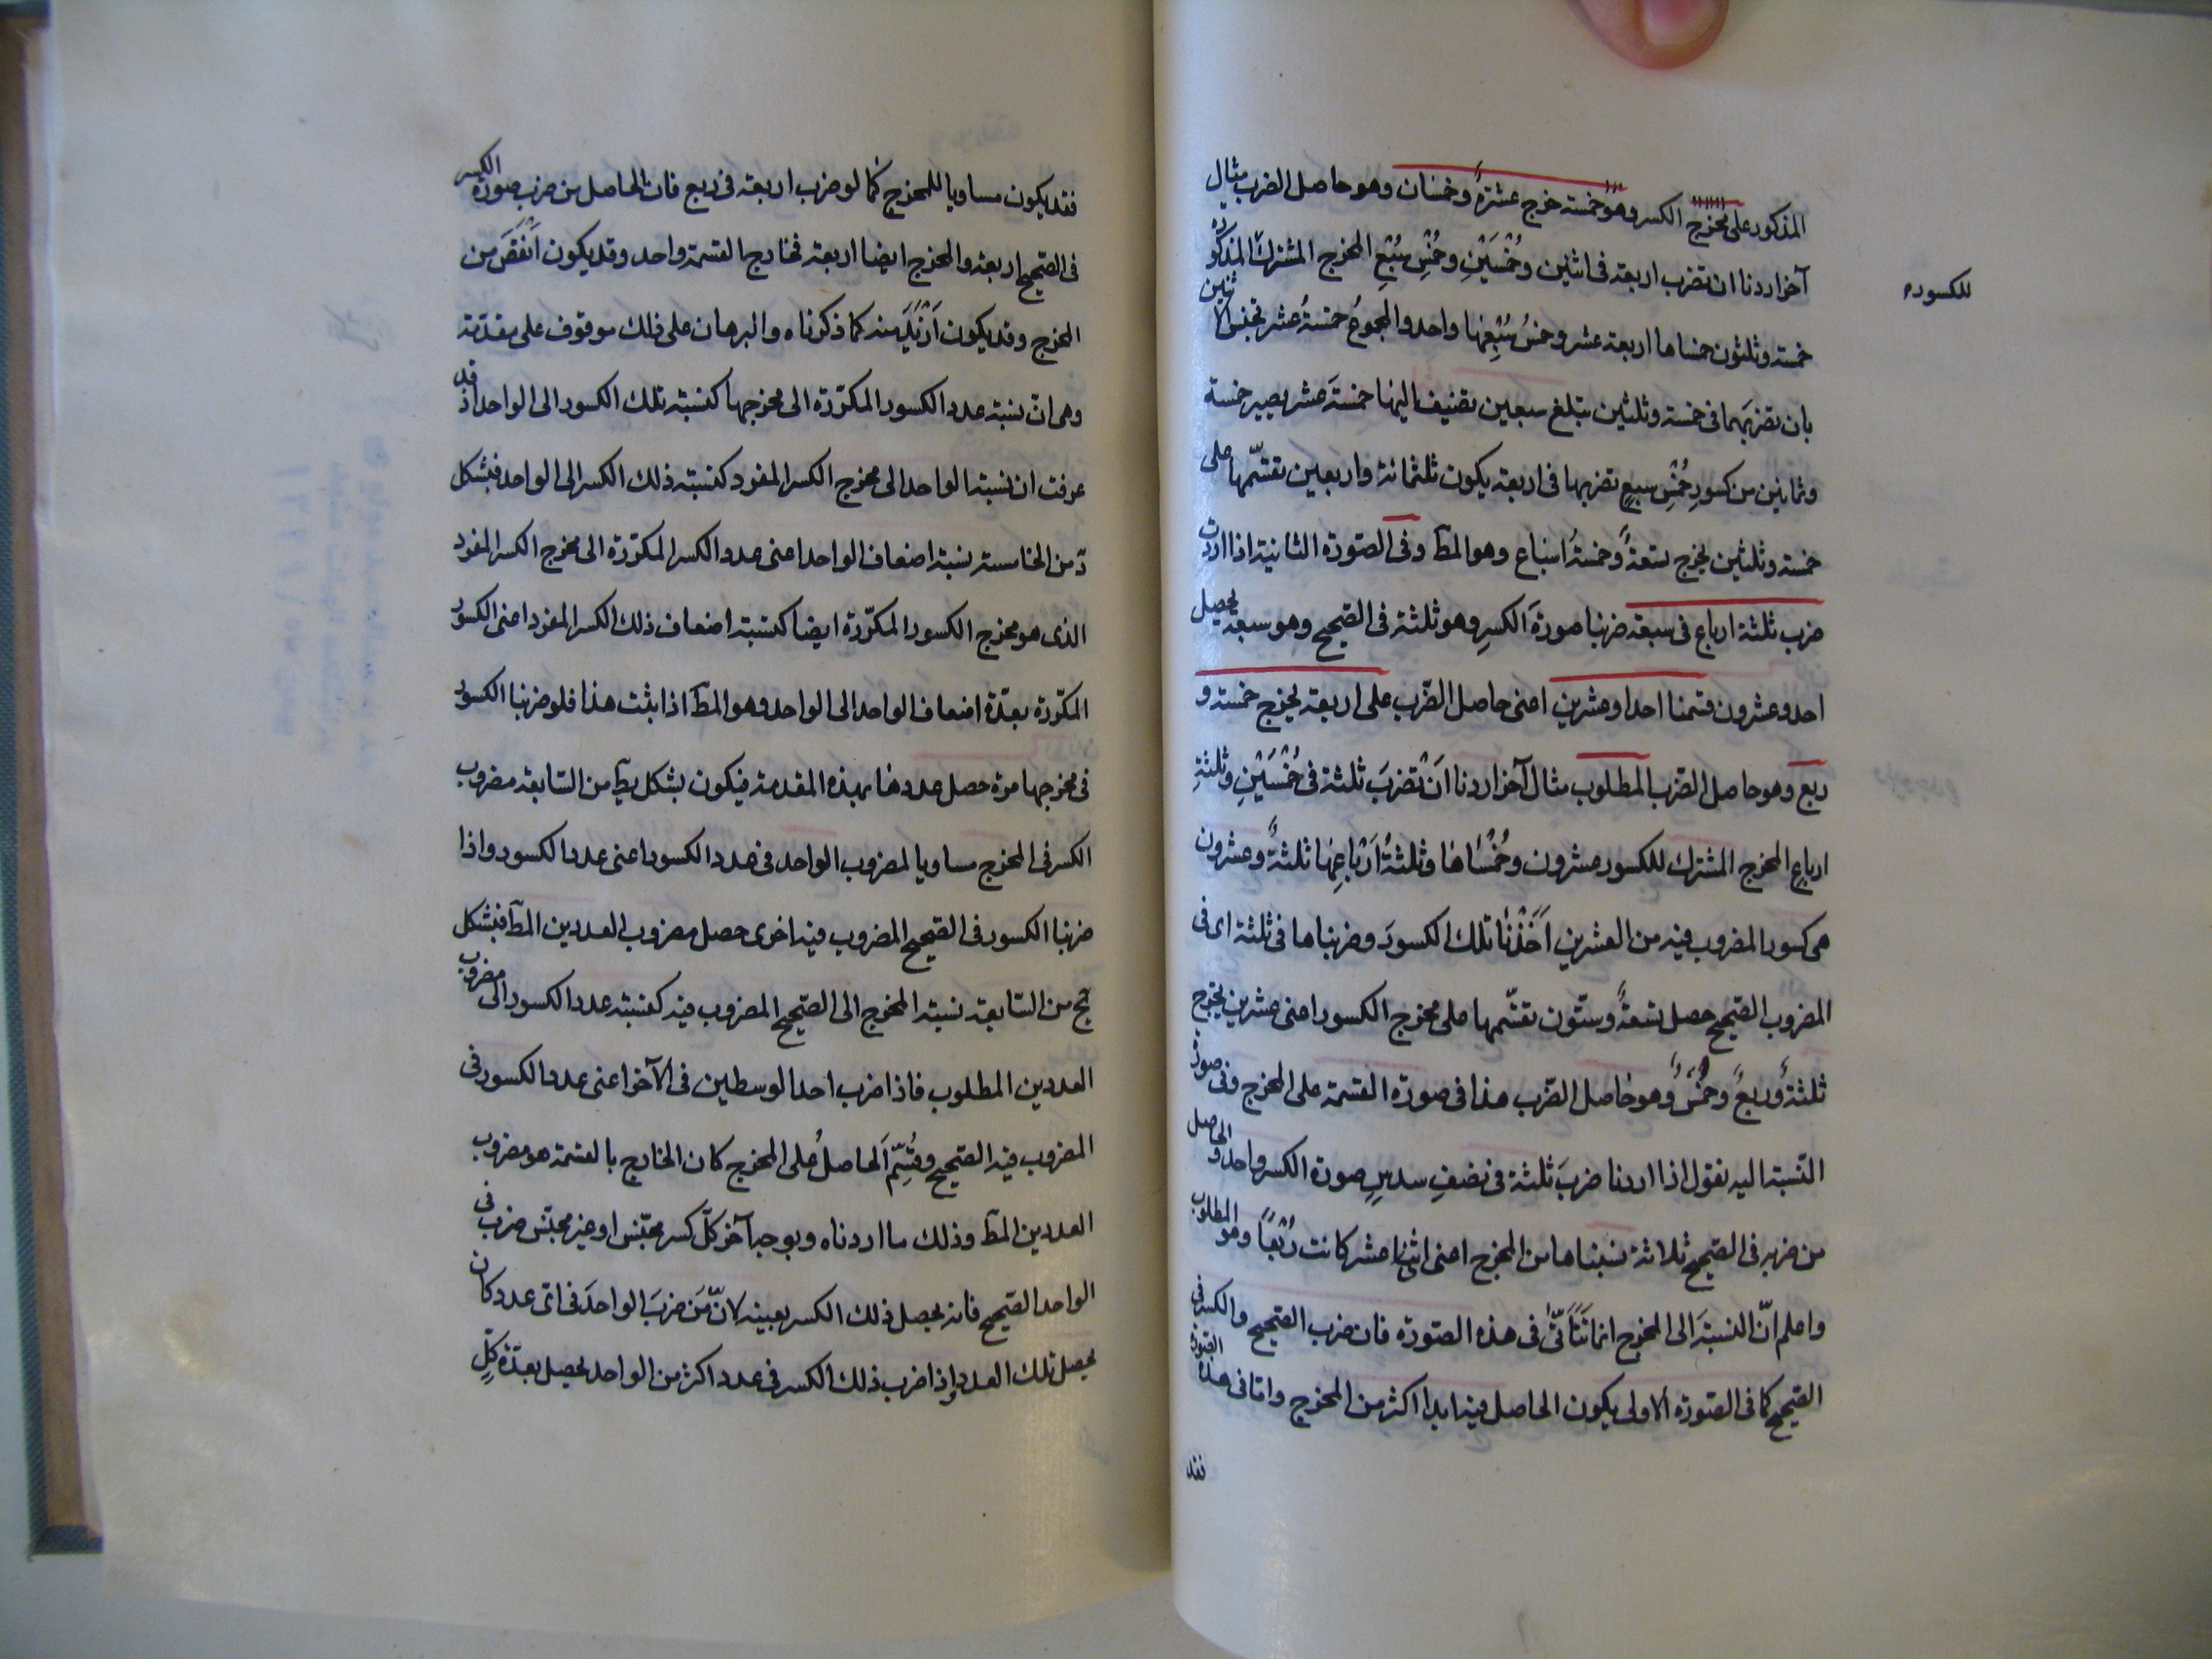 المذكور على مخرج الكسر وهو خمسة خرج عشرةٌ وخمسان وهو حاصل الضرب مثال
للكسوره
آخر اردنا ان نضرب اربعة فى اثنين وخُمْسَيْنِ وخُمْسِ سُبْعِ المخرج المشترك المذكوره
خمسة وثلثون خمساها اربعة عشر وخمسُ سُبْعِها واحد والمجموعُ خمسةُ عشر تجنس الاثنين
بان تضربهما فى خمسة وثلثين تبلغ سبعين تضيف اليها خمسةَ عشر يصير خمسة
وثمانين من كسورِ خُمْسِ سبعٍ تضربها فى اربعة يكون ثلثمائة واربعين تقسّمها على
خمسة وثلثين يخرج تسعةٌ وخمسةُ اسباع وهو المط وفى الصّورة الثانية اذا اردت
ضرب ثلثة ارباع فى سبعة ضربنا صورةَ الكسرِ وهو ثلثة فى الصّحيح وهو سبعة يحصل
احد وعشرون قسمنا احدا وعشرين اعنى حاصل الضّرب على اربعة يخرج خمسة و
ربع وهو حاصل الضّرب المطلوب مثال آخر اردنا اَنْ نضْربَ ثلثة فى خُمْسَيْنِ وثلثةِ
ارباعِ المخرج المشترك للكسور عشرون وخُمْسَاها وثلثةُ اَرْباعِها ثلثةٌ وعشرون
هى كسور المضروب فيه من العشرين اَخَذْنا تلك الكسورَ وضربناها فى ثلثة اى فى
المضروب الصّحيح حصل تسعةٌ وستّون نقسّمها على مخرج الكسور اعنى عشرين يخرج
ثلثةٌ وربعٌ وخُمْسٌ وهو حاصل الضّرب هذا فى صورة القسمة على المخرج وفى صورة
النّسبة اليه نقول اذا اردنا ضربَ ثلثة فى نصفِ سدسٍ صورة الكسر واحد والحاصل
من ضربه فى الصّحيح ثلاثة نسبناها من المخرج اعنى اثنا عشر كانت رُبْعًا وهو المطلوب
واعلم انّ النسبةَ الى المخرج انما تَتَأَتّٰى فى هذه الصّورة فان ضرب الصّحيح والكسر فى
الصّحيح كما فى الصّورة الاولى يكون الحاصل فيه ابدا اكثر من المخرج واما فى هذه الصّورة
فقد
فقد يكون مساويا للمخرج كما لو ضرب اربعة فى ربع فان الحاصل من ضرب صورة الكسر
فى الصّحيح اربعة والمخرج ايضا اربعة فخارج القسمة واحد وقد يكون اَنْقَصَ من
المخرج وقد يكون اَزْيَدَ منه كما ذكرناه والبرهان على ذلك موقوف على مقدّمة
وهى انّ نسبة عدد الكسور المكرّرة الى مخرجها كنسبة تلك الكسور الى الواحد اذ قد
عرفت ان نسبة الواحد الى مخرج الكسر المفرد كنسبة ذلك الكسر الى الواحد فبشكل
من الخامسة نسبة اضعاف الواحد اعنى عدد الكسر المكرّرة الى مخرج الكسر المفرد
الذى هو مخرج الكسور المكرّرة ايضا كنسبة اضعاف ذلك الكسر المفرد اعنى الكسور
المكرّرة بعدّة اضعاف الواحد الى الواحد وهو المط اذا ثبت هذا فلو ضربنا الكسور
فى مخرجها مرة حصل عددها بهذه المقدمة فيكون بشكل يط من السّابعة مضروب
الكسر فى المخرج مساويا لمضروب الواحد فى عدد الكسور اعنى عدد الكسور واذا
ضربنا الكسور فى الصّحيح المضروب فيه اخرى حصل مضروب العددين المط فبشكل
يح من السّابعة نسبة المخرج الى الصّحيح المضروب فيه كنسبة عدد الكسور الى مضروب
العددين المطلوب فاذا ضرب احد الوسطين فى الآخر اعنى عدد الكسور فى
المضروب فيه الصّحيح وقُسِّمَ الحاصلُ على المخرج كان الخارج بالقسمة هو مضروب
العددين المط وذلك ما اردناه وبوجه آخر كلّ كسر مجنّس او غير مجنّس ضرب فى
الواحد الصّحيح فانه يحصل ذلك الكسر بعينه لانّ مَن ضربَ الواحدَ فى اى عدد كان
يحصل تلك العدد واذا ضرب ذلك الكسر فى عدد اكثر من الواحد يحصل بعدّة كلِّ